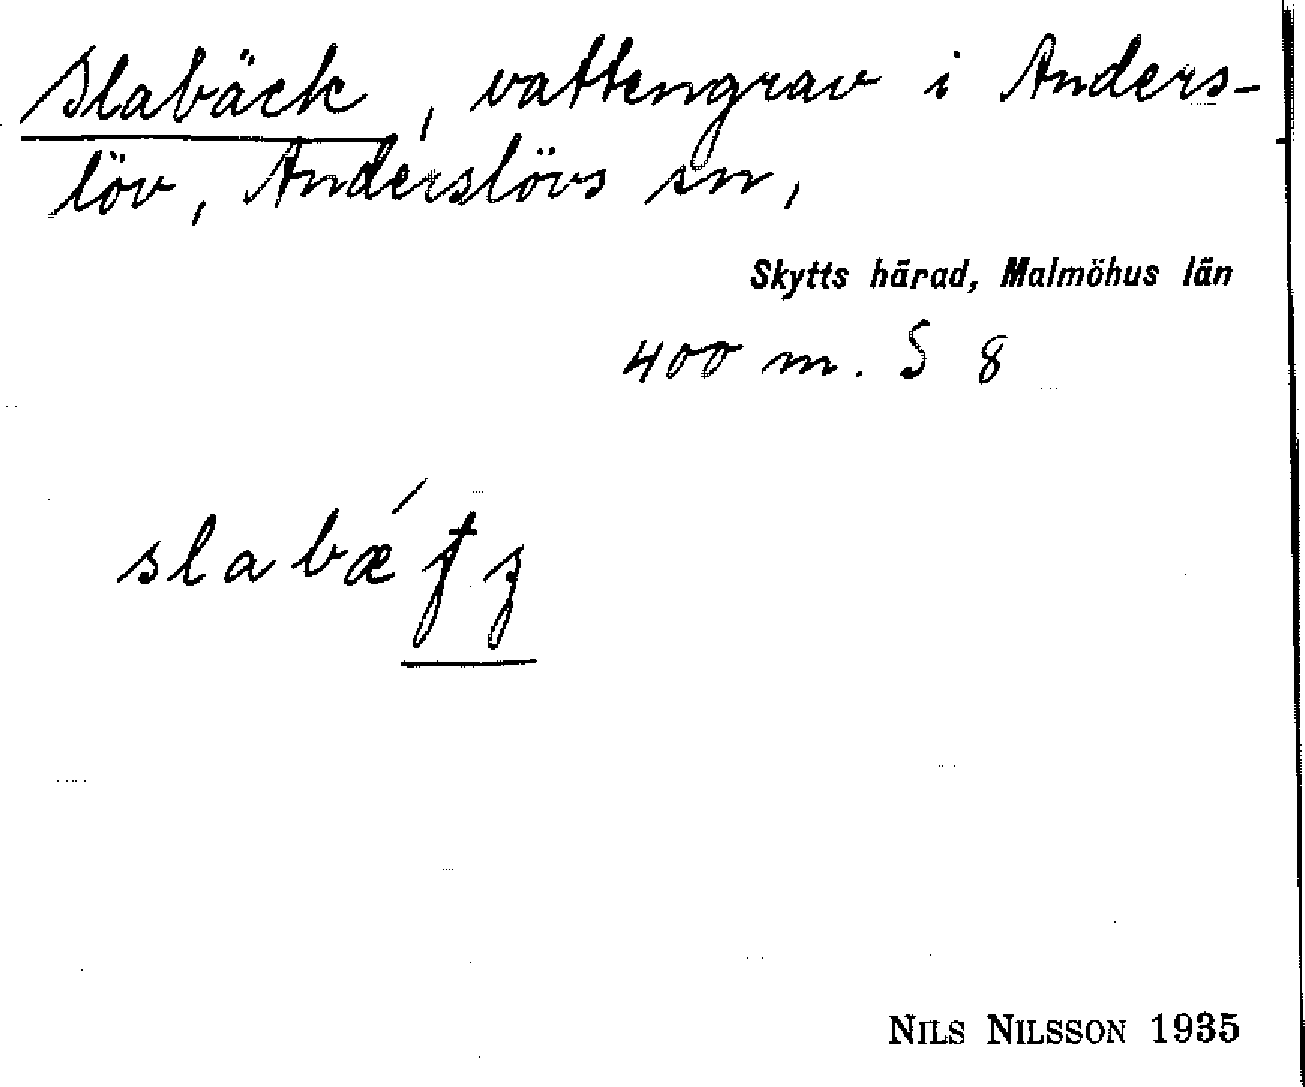 Slabäck, vattengrav i Anders-
löv, Anderslövs sn,
Skytts härad, Malmöhus län
400 m. S 8
NILS NILSSON 1935